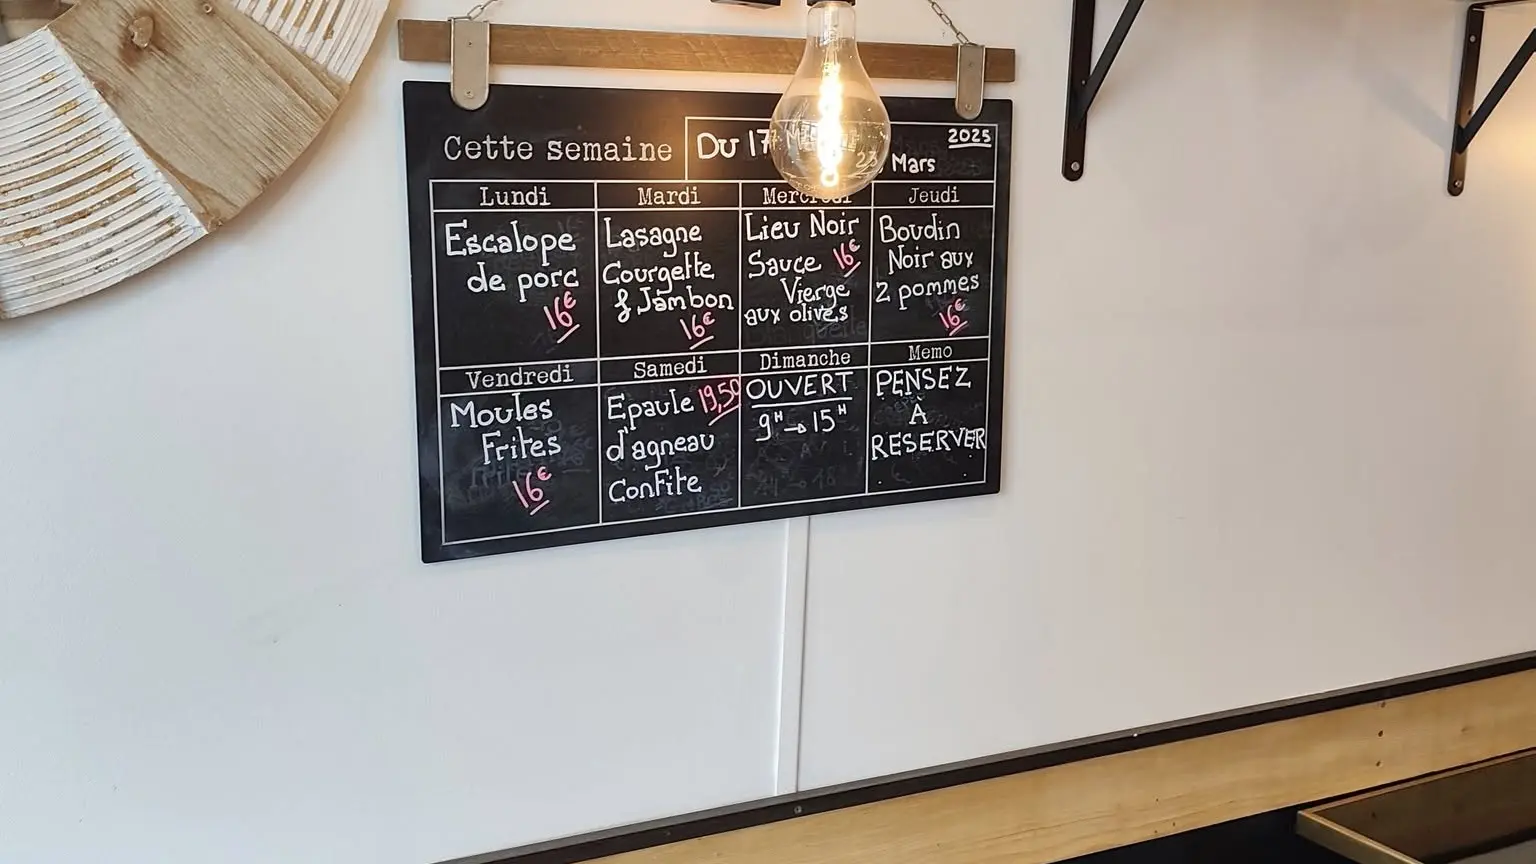 Cette semaine
Du 17
23 Mars
2025
Lundi
Escalope
de porc
16€
Mardi
Lasagne
Courgette
& Jambon
16€
Mercredi
Lieu Noir
Sauce 16€
Vierge
aux olives
Jeudi
Boudin
Noir aux
2 pommes
16€
Vendredi
Moules
Frites
16€
Samedi
Epaule 19,50
d'agneau
Confite
Dimanche
OUVERT
9H → 15H
Memo
PENSEZ
À
RESERVER